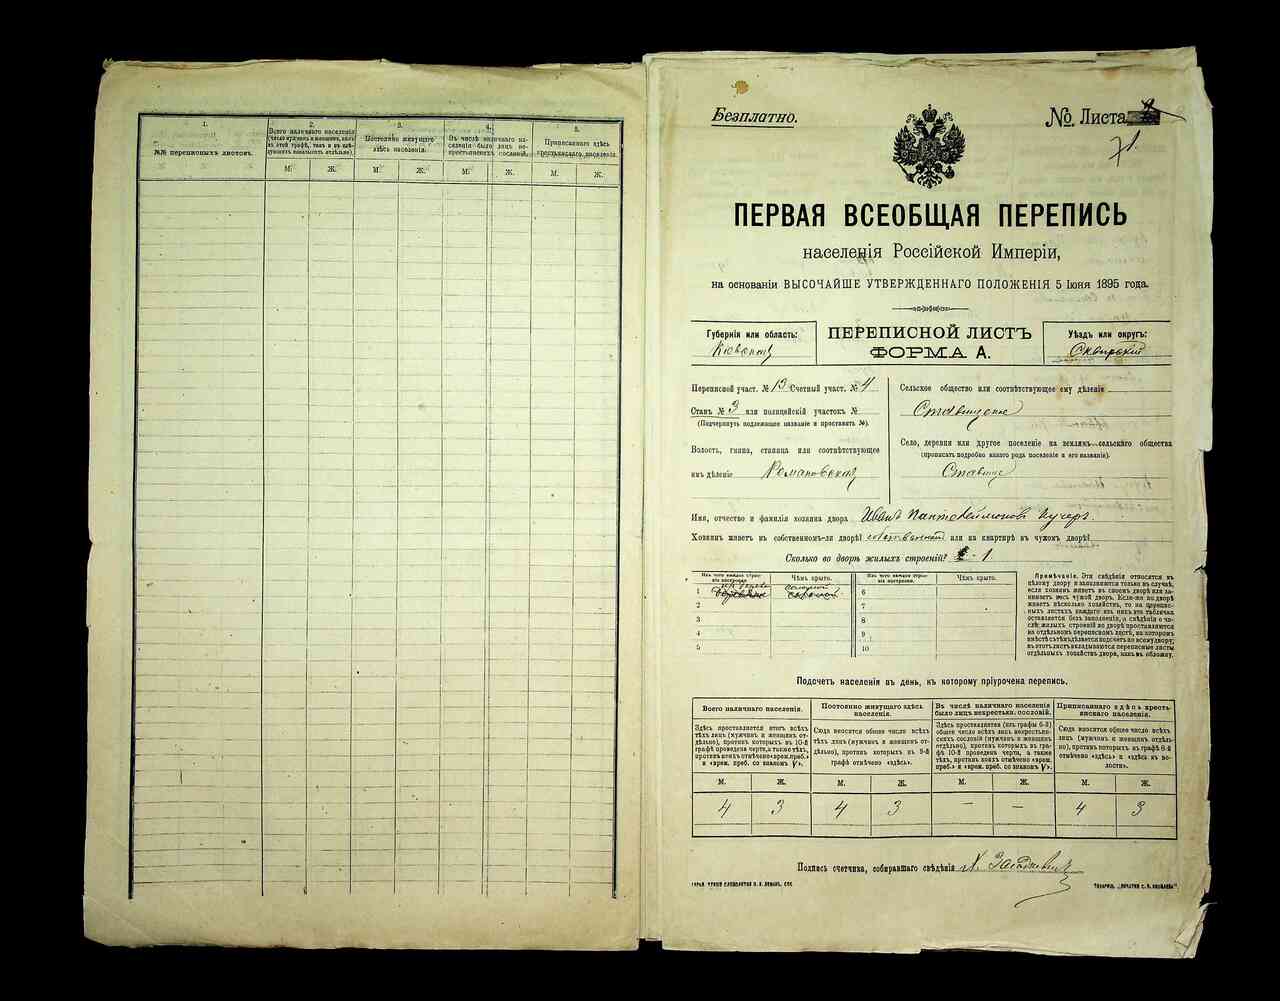 1.
2.
3.
4.
5.
№№ переписныхъ листовъ.
Всего наличнаго населенія
(число мужчинъ и женщинъ, какъ
въ этой графѣ, такъ и въ слѣ-
дующихъ показывать отдѣльно).
Постоянно живущаго
здѣсь населенія.
Въ числѣ наличнаго на-
селенія было лицъ не-
крестьянскихъ сословій.
Приписаннаго здѣсь
крестьянскаго населенія.
М. Ж. М. Ж. М. Ж. М. Ж.
Безплатно.
№ Листа
71.
ПЕРВАЯ ВСЕОБЩАЯ ПЕРЕПИСЬ
населенія Россійской Имперіи,
на основаніи ВЫСОЧАЙШЕ УТВЕРЖДЕННАГО ПОЛОЖЕНІЯ 5 Іюня 1895 года.
Губернія или область:
Кіевская
ПЕРЕПИСНОЙ ЛИСТЪ
ФОРМА А.
Уѣздъ или округъ:
Сквирскій
Переписной участ. № 13 Счетный участ. № 4
Станъ № 3 или полицейскій участокъ №
(Подчеркнуть подлежащее названіе и проставить №).
Волость, гмина, станица или соотвѣтствующее
имъ дѣленіе Романовская
Сельское общество или соотвѣтствующее ему дѣленіе
Ставищское
Село, деревня или другое поселеніе на земляхъ сельскаго общества
(прописать подробно какого рода поселеніе и его названіе).
Ставище
Имя, отчество и фамилія хозяина двора Иванъ Пантелеймоновъ Кучеръ.
Хозяинъ живетъ въ собственномъ-ли дворѣ? собственномъ или на квартирѣ въ чужомъ дворѣ?
Сколько во дворѣ жилыхъ строеній? 1
Изъ чего каждое строе-
ніе построено.
Чѣмъ крыто.
Изъ чего каждое строе-
ніе построено.
Чѣмъ крыто.
1 изъ дерева соломой
2
3
4
5
6
7
8
9
10
Примѣчаніе. Эти свѣдѣнія относятся къ
цѣлому двору и заполняются только въ случаѣ,
если хозяинъ живетъ въ своемъ дворѣ или за-
нимаетъ весь чужой дворъ. Если-же во дворѣ
живетъ нѣсколько хозяйствъ, то на перепис-
ныхъ листахъ каждаго изъ нихъ эта табличка
оставляется безъ заполненія, а свѣдѣнія о чи-
слѣ жилыхъ строеній во дворѣ проставляются
на отдѣльномъ переписномъ листѣ, на которомъ
вмѣстѣ съ тѣмъ дѣлается подсчетъ по всему двору;
въ этотъ листъ вкладываются переписные листы
отдѣльныхъ хозяйствъ двора, какъ въ обложку.
Подсчетъ населенія въ день, къ которому пріурочена перепись.
Всего наличнаго населенія.
Здѣсь проставляется итогъ всѣхъ
тѣхъ лицъ (мужчинъ и женщинъ от-
дѣльно), противъ которыхъ въ 10-й
графѣ проведена черта, а также тѣхъ,
противъ коихъ отмѣчено «врем. преб.»
и «врем. преб. со знакомъ V».
Постоянно живущаго здѣсь
населенія.
Сюда вносится общее число всѣхъ
тѣхъ лицъ (мужчинъ и женщинъ от-
дѣльно), противъ которыхъ въ 9-й
графѣ отмѣчено «здѣсь».
Въ числѣ наличнаго населенія
было лицъ некрестьян. сословій.
Здѣсь проставляется (изъ графы 6-й)
общее число всѣхъ лицъ некрестьян-
скихъ сословій (мужчинъ и женщинъ
отдѣльно), противъ которыхъ въ гра-
фѣ 10-й проведена черта, а также
тѣхъ, противъ коихъ отмѣчено «врем.
преб.» и «врем. преб. со знакомъ V».
Приписаннаго здѣсь кресть-
янскаго населенія.
Сюда вносится общее число всѣхъ
тѣхъ лицъ (мужчинъ и женщинъ отдѣль-
но), противъ которыхъ въ графѣ 8-й
отмѣчено «здѣсь» и «здѣсь въ во-
лости».
М. Ж. М. Ж. М. Ж. М. Ж.
4 3 4 3 – – 4 3
Подпись счетчика, собиравшаго свѣдѣнія